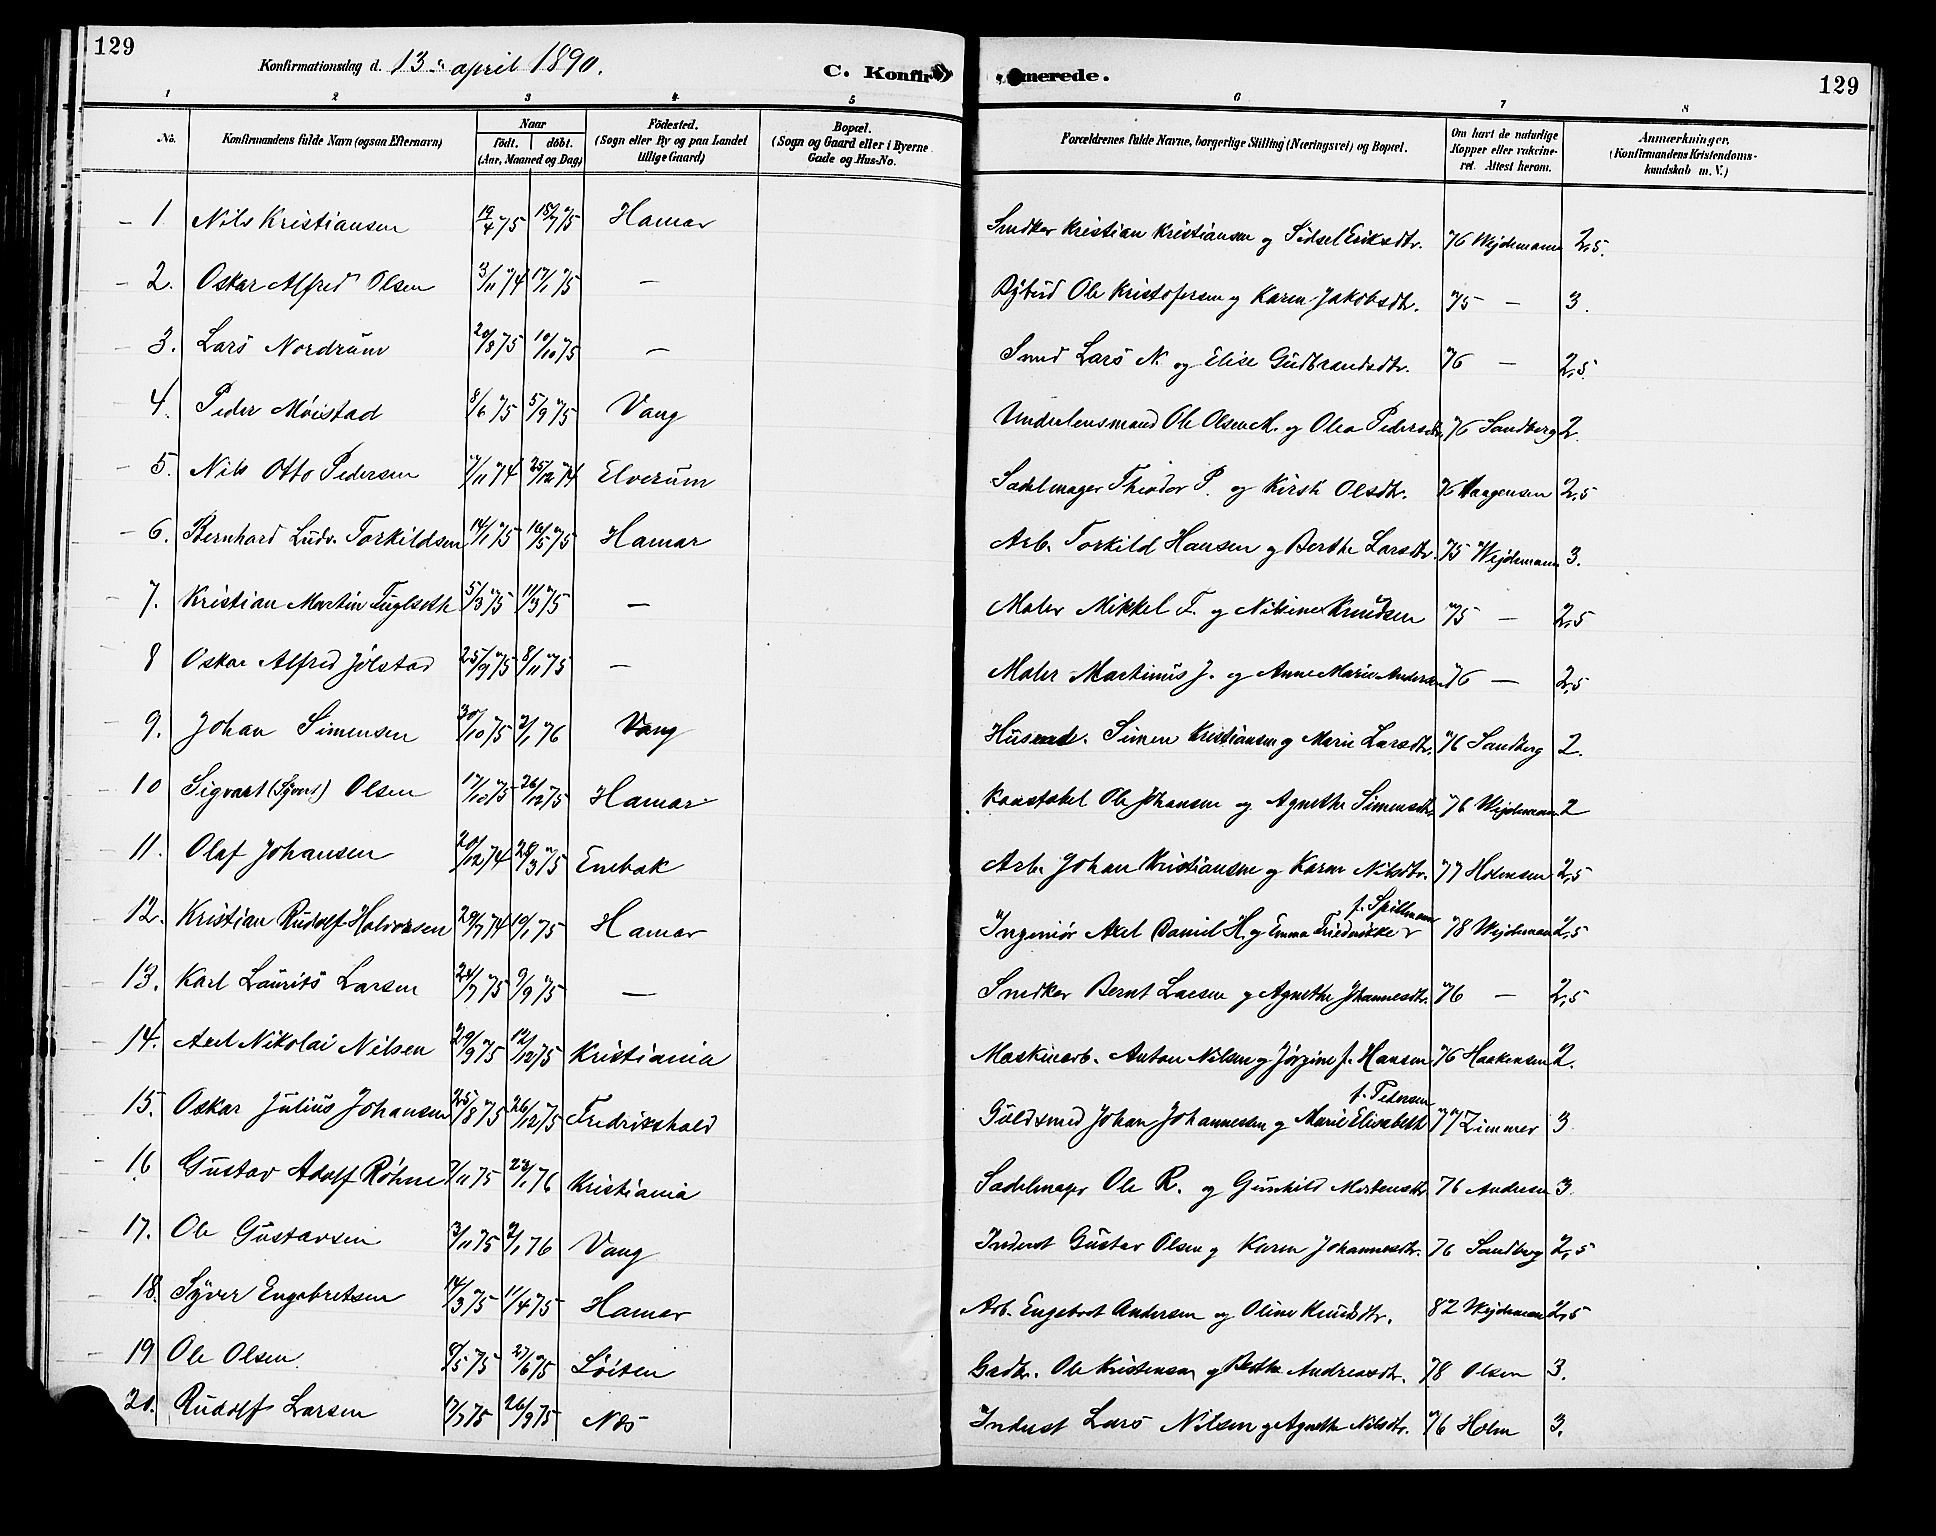 129
Konfirmationsdag d. 13de april 1890.
C. Konfirmerede.
129
1 2 3 4 5 6 7 8
No.
Konfirmandens fulde Navn (ogsaa Efternavn)
Naar
födt. döbt.
(Aar, Maaned og Dag)
Födested.
(Sogn eller By og paa Landet
tillige Gaard)
Bopæl.
(Sogn og Gaard eller i Byerne
Gade og Hus-No.
Forældrenes fulde Navne, borgerlige Stilling (Næringsvei) og Bopæl.
Om havt de naturlige
Kopper eller vakcine-
ret. Attest herom.
Anmærkninger.
(Konfirmandens Kristendoms-
kundskab m. V.)
1. Nils Kristiansen 19/4 75 18/7 75 Hamar Snedker Kristian Kristiansen og Sidsel Eriksdtr. 76 Wejdemann 2,5.
2. Oskar Alfred Olsen 3/11 74 17/1 75 — Bybud Ole Kristofersen og Karen Jakobsdtr. 75 — 3.
3. Lars Nordrum 20/8 75 10/10 75 — Smed Lars N. og Elise Gudbrandsdtr. 76 — 2,5.
4. Peder Möistad 8/6 75 5/9 75 Vang Underlensmand Ole Olsen M. og Olea Pedersdtr. 76 Sandberg 2.
5. Nils Otto Pedersen 7/11 74 25/12 74 Elverum Sadelmager Theodor P. og Kirsti Olsdtr. 76 Haagensen 2,5
6. Bernhard Ludv. Torkildsen 14/1 75 16/5 75 Hamar Arb. Torkild Hansen og Berthe Larsdtr. 75 Wejdemann 3.
7. Kristian Martin Fuglseth 5/3 75 11/3 75 — Maler Mikkel F. og Nikine Knudsen 75 — 2,5
8 Oskar Alfred Jölstad 25/9 75 8/11 75 — Maler Martinius J. og Anne Marie Andersen 76 — 2,5
9. Johan Simensen 30/10 75 2/1 76 Vang Husmd. Simen Kristiansen og Marie Larsdtr. 76 Sandberg 2.
10 Sigvart (Syvert) Olsen 17/10 75 26/12 75 Hamar Konstabel Ole Johansen og Agnethe Simensdtr 76 Wejdemann 2
11. Olaf Johansen 20/12 74 28/3 75 Enebak Arb. Johan Kristiansen og Karen Nilsdtr. 77 Holmsen 2,5
12. Kristian Rudolf Halvorsen 29/7 74 10/1 75 Hamar Ingeniör Axel Daniel H. og Emma Friedrikke f. Spillmann 78 Wejdeman 2,5
13. Karl Laurits Larsen 24/7 75 9/9 75 — Snedker Bernt Larsen og Agnethe Johannesdtr. 76 — 2,5
14. Axel Nikolai Nilsen 29/9 75 12/12 75 Kristiania Maskinarb. Anton Nilsen og Jörgine f. Hansen 76 Haakensen 2.
15. Oskar Julius Johansen 25/8 75 26/12 75 Fredrikshald Guldsmed Johan Johannessen og Marie Elisabeth f. Pedersen 77 Zimmer 3
16 Gustav Adolf Röhne 7/11 75 23/1 76 Kristiania Sadelmager Ole R. og Gunhild Mortensdtr 76 Andresen 3.
17. Ole Gustavsen 3/11 75 2/1 76 Vang Inderst Gustav Olsen og Karen Johannesdtr. 76 Sandberg 2,5
18. Syver Engebretsen 14/3 75 11/4 75 Hamar Arb. Engebret Andersen og Oline Knudsdtr. 82 Wejdeman 2,5
19 Ole Olsen. 8/5 75 27/6 75 Löiten Gadbr. Ole Kristensen og Berthe Andreasdtr. 78 Olsen 3.
20. Rudolf Larsen 17/7 75 26/9 75 Næs Inderst Lars Nilsen og Agnethe Nilsdtr. 76 Holm 3.